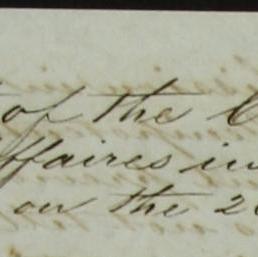 of the
ffaires in
on the 2